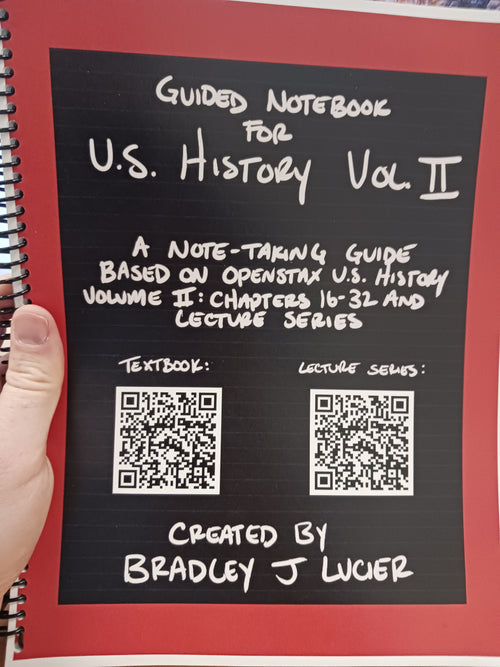 GUIDED NOTEBOOK
FOR
U.S. HISTORY VOL. II
A NOTE-TAKING GUIDE
BASED ON OPENSTAX U.S. HISTORY
VOLUME II: CHAPTERS 16-32 AND
LECTURE SERIES
TEXTBOOK: LECTURE SERIES:
CREATED BY
BRADLEY J LUCIER